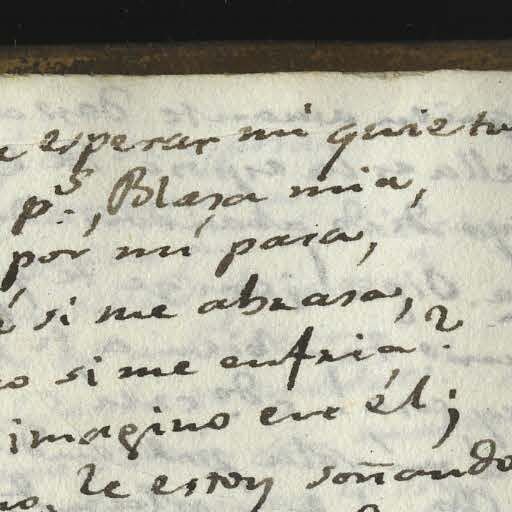 esperar mi quietu
p.s, Blasa mia,
por mi pasa,
é si me abrasa,
o si me enfria?
imagino en él;
no, le estoy soñando